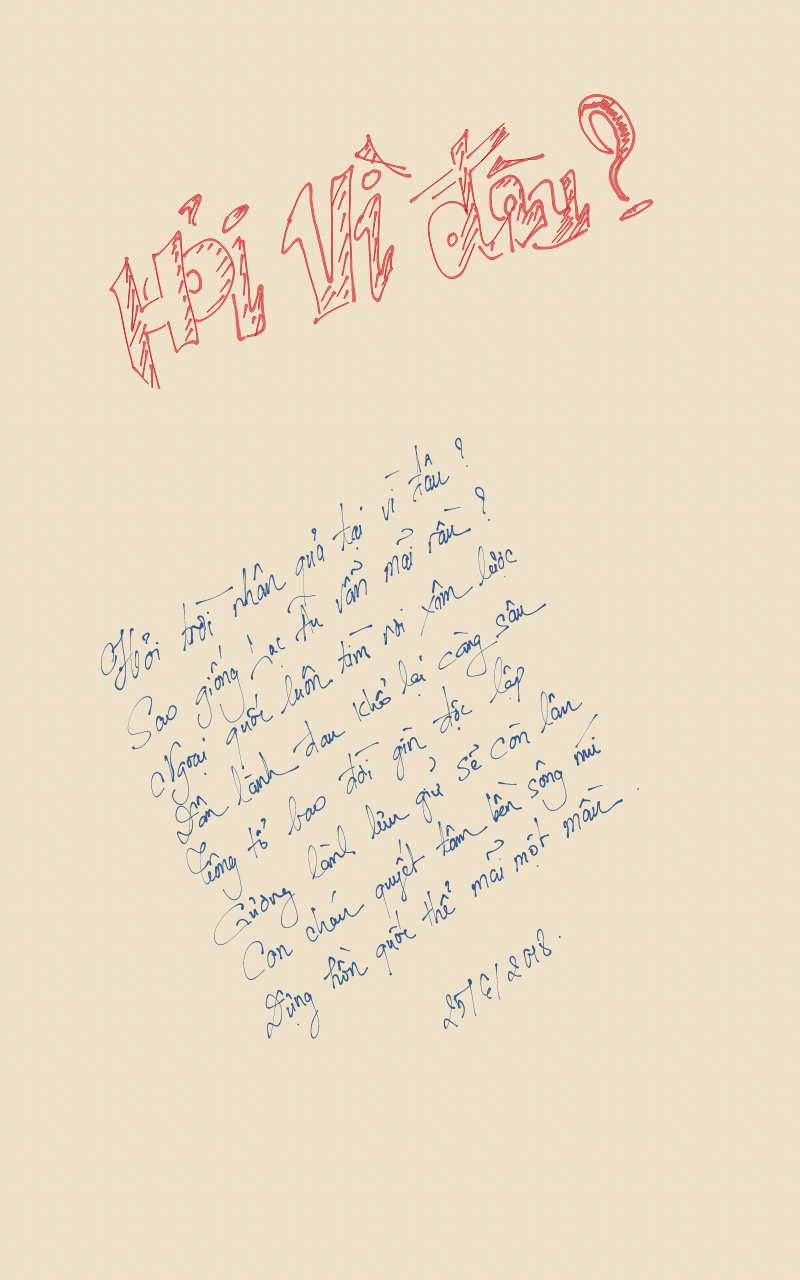 Hỏi Vì đâu?
Hỏi trời nhân quả tại vì đâu?
Sao giống ác tu vẫn mãi rầu?
Ngoại quốc luôn tìm nơi xâm lược
Dân lành đau khổ lại càng sâu
Tông tổ bao đời gìn độc lập
Gương lành lưu giữ sẽ còn lâu
Con cháu quyết tâm bền sông núi
Dựng hồn quốc thể mãi một mầu.
25/6/2018.